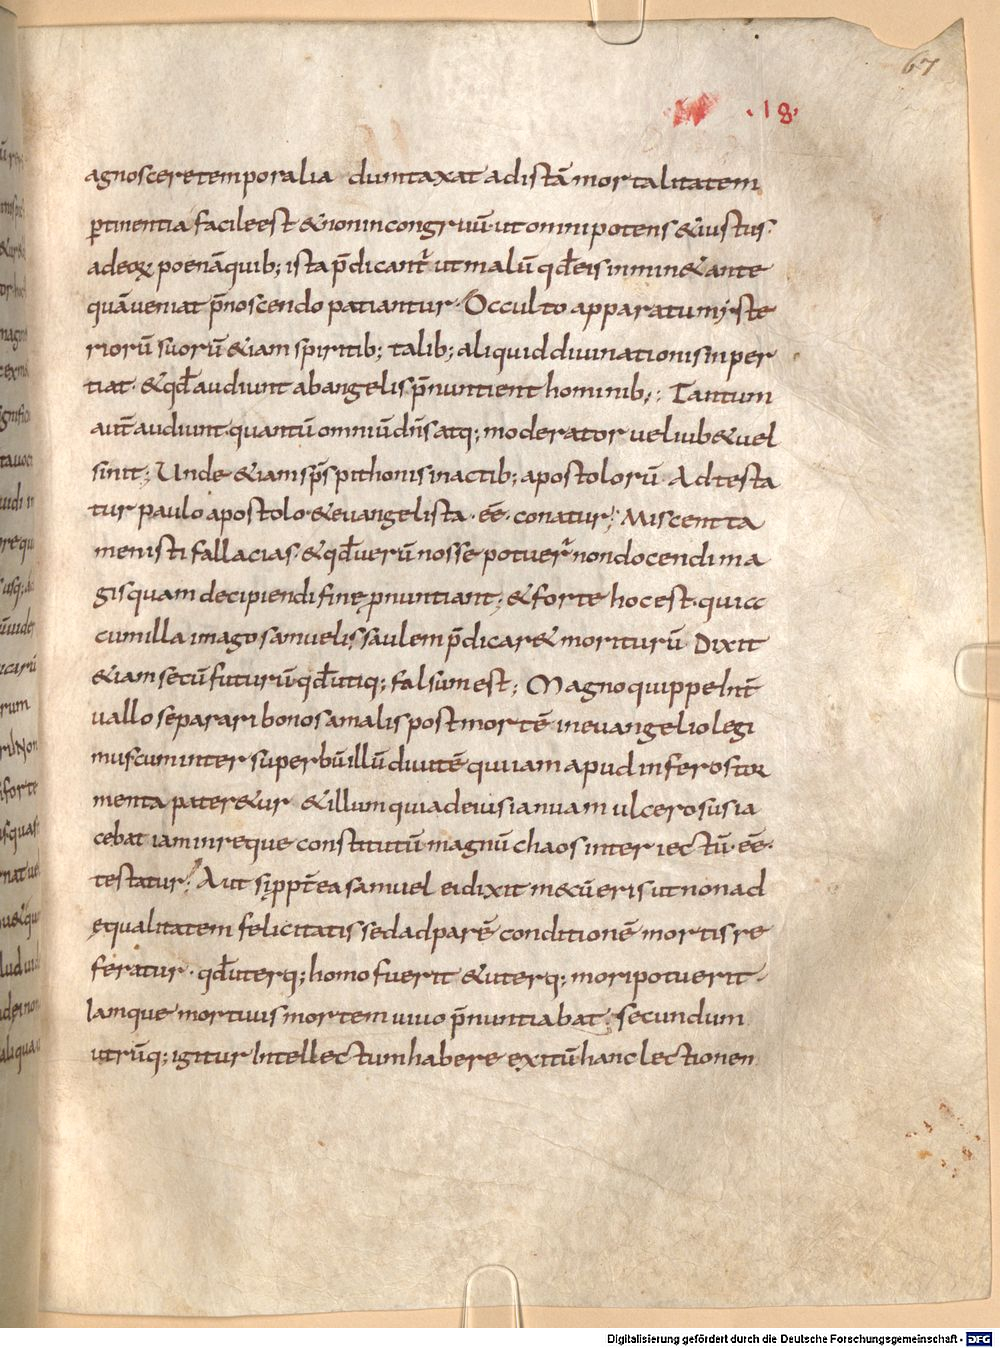 67
·18·
agnoscere temporalia dumtaxat ad istā mortalitatem
ꝑtinentia facile est & non incongruū· ut omnipotens & iustus·
ad eoꝝ poenā quib; ista p̄dicant᷑ ut malū qđ eis inmin& ante
quā veniat p̄noscendo patiantur· Occulto apparatu myste
riorū suorū &iam spiritib; talib; aliquid divinationis imper
tiat· & qđ audiunt ab angelis p̄nuntient hominib;; Tantum
aut̄ audiunt quantū omniū dn̄s atq; moderator vel iub& vel
sinit; Unde &iam sp̄s pithonis in actib; apostolorū Ad testa
tur paulo apostolo & evangelista· ēē· conatur; Miscent ta
men isti fallacias· & qđ verū nosse potuer̄ non docendi ma
gis quam decipiendi fine p̱nuntiant; & forte hoc est· qui cc
cum illa imago samuelis saulem p̄dicar& moriturū Dixit
&iam secū futurū· qđ utiq; falsum est; Magno quippe int̄
vallo separari bonos a malis post mortē in evangelio legi
mus cum inter superbū illū divitē qui iam apud inferos tor
menta pater&ur & illum qui ad eius ianuam ulcerosus ia
cebat iam in requie constitutū magnū chaos inter iectū· ēē·
testatur; Aut si ppt̄ea samuel ei dixit mecū eris ut non ad
ęqualitatem felicitatis sed ad parē conditionē mortis re
feratur· qđ uterq; homo fuerit & uterq; mori potuerit·
Iamque mortuus mortem vivo p̄nuntiabat; secundum
utrūq; igitur intellectum habere exitū hanc lectionem
Digitalisierung gefördert durch die Deutsche Forschungsgemeinschaft - DFG